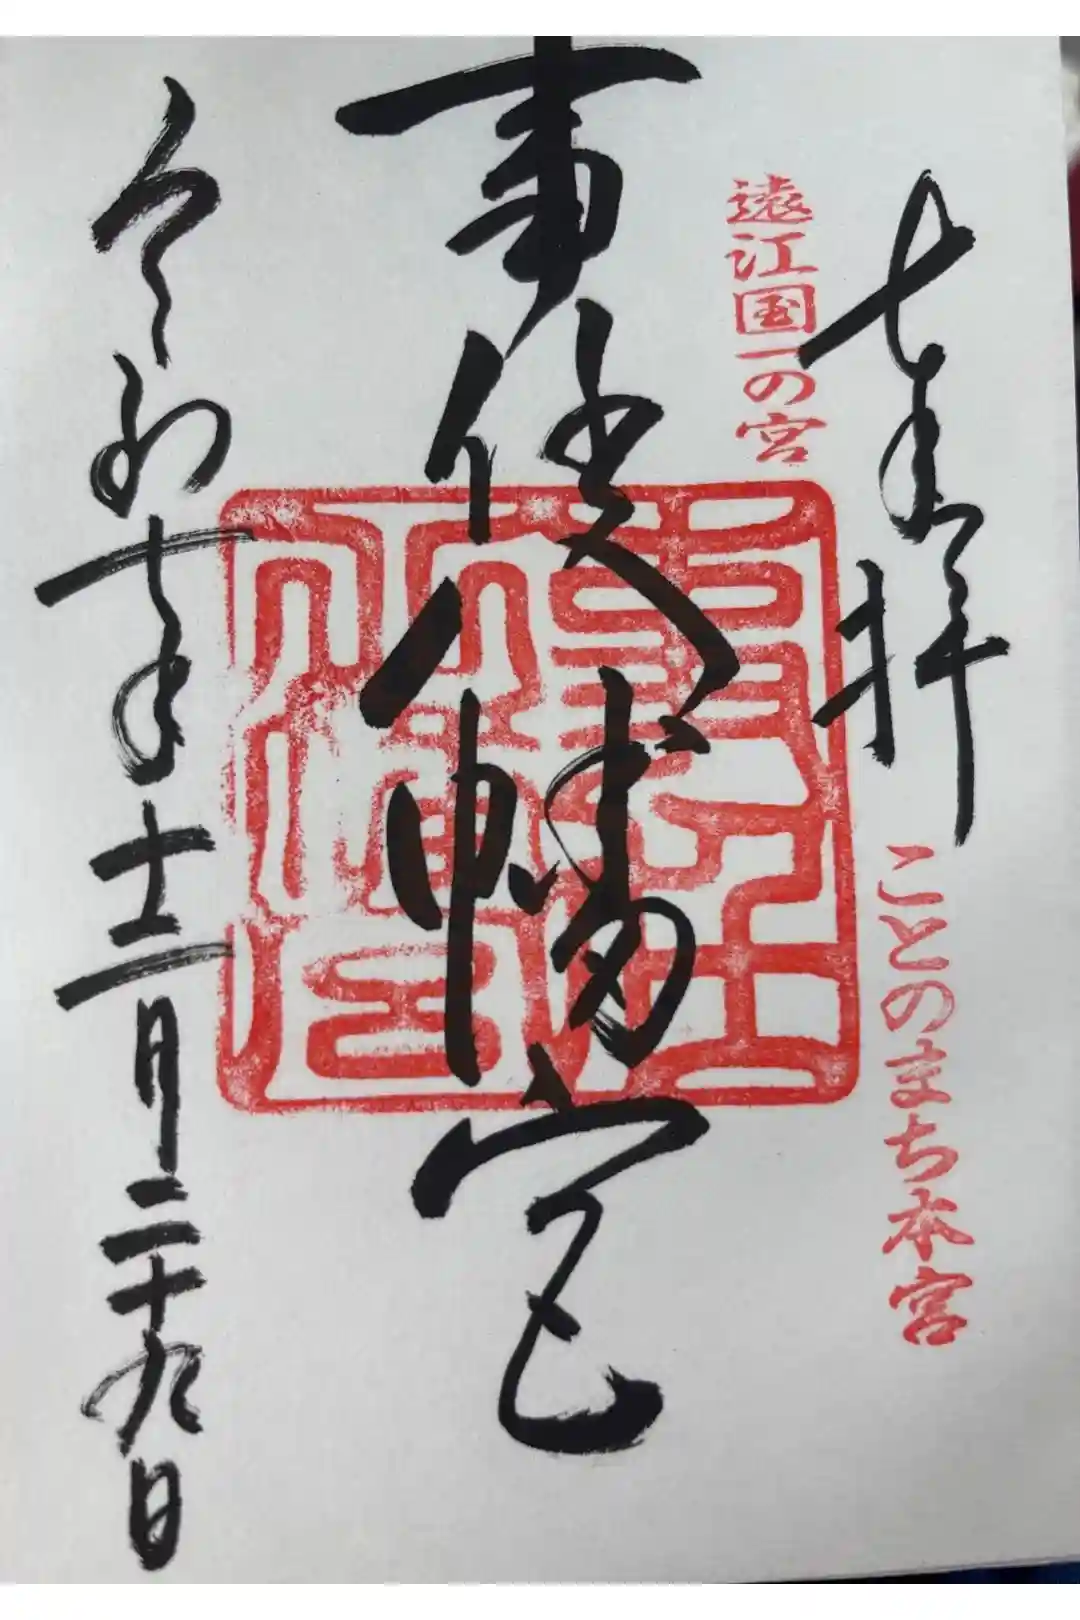 奉拝
遠江国一の宮
ことのまち本宮
事任八幡宮
事任八幡宮
令和七年十二月二十九日